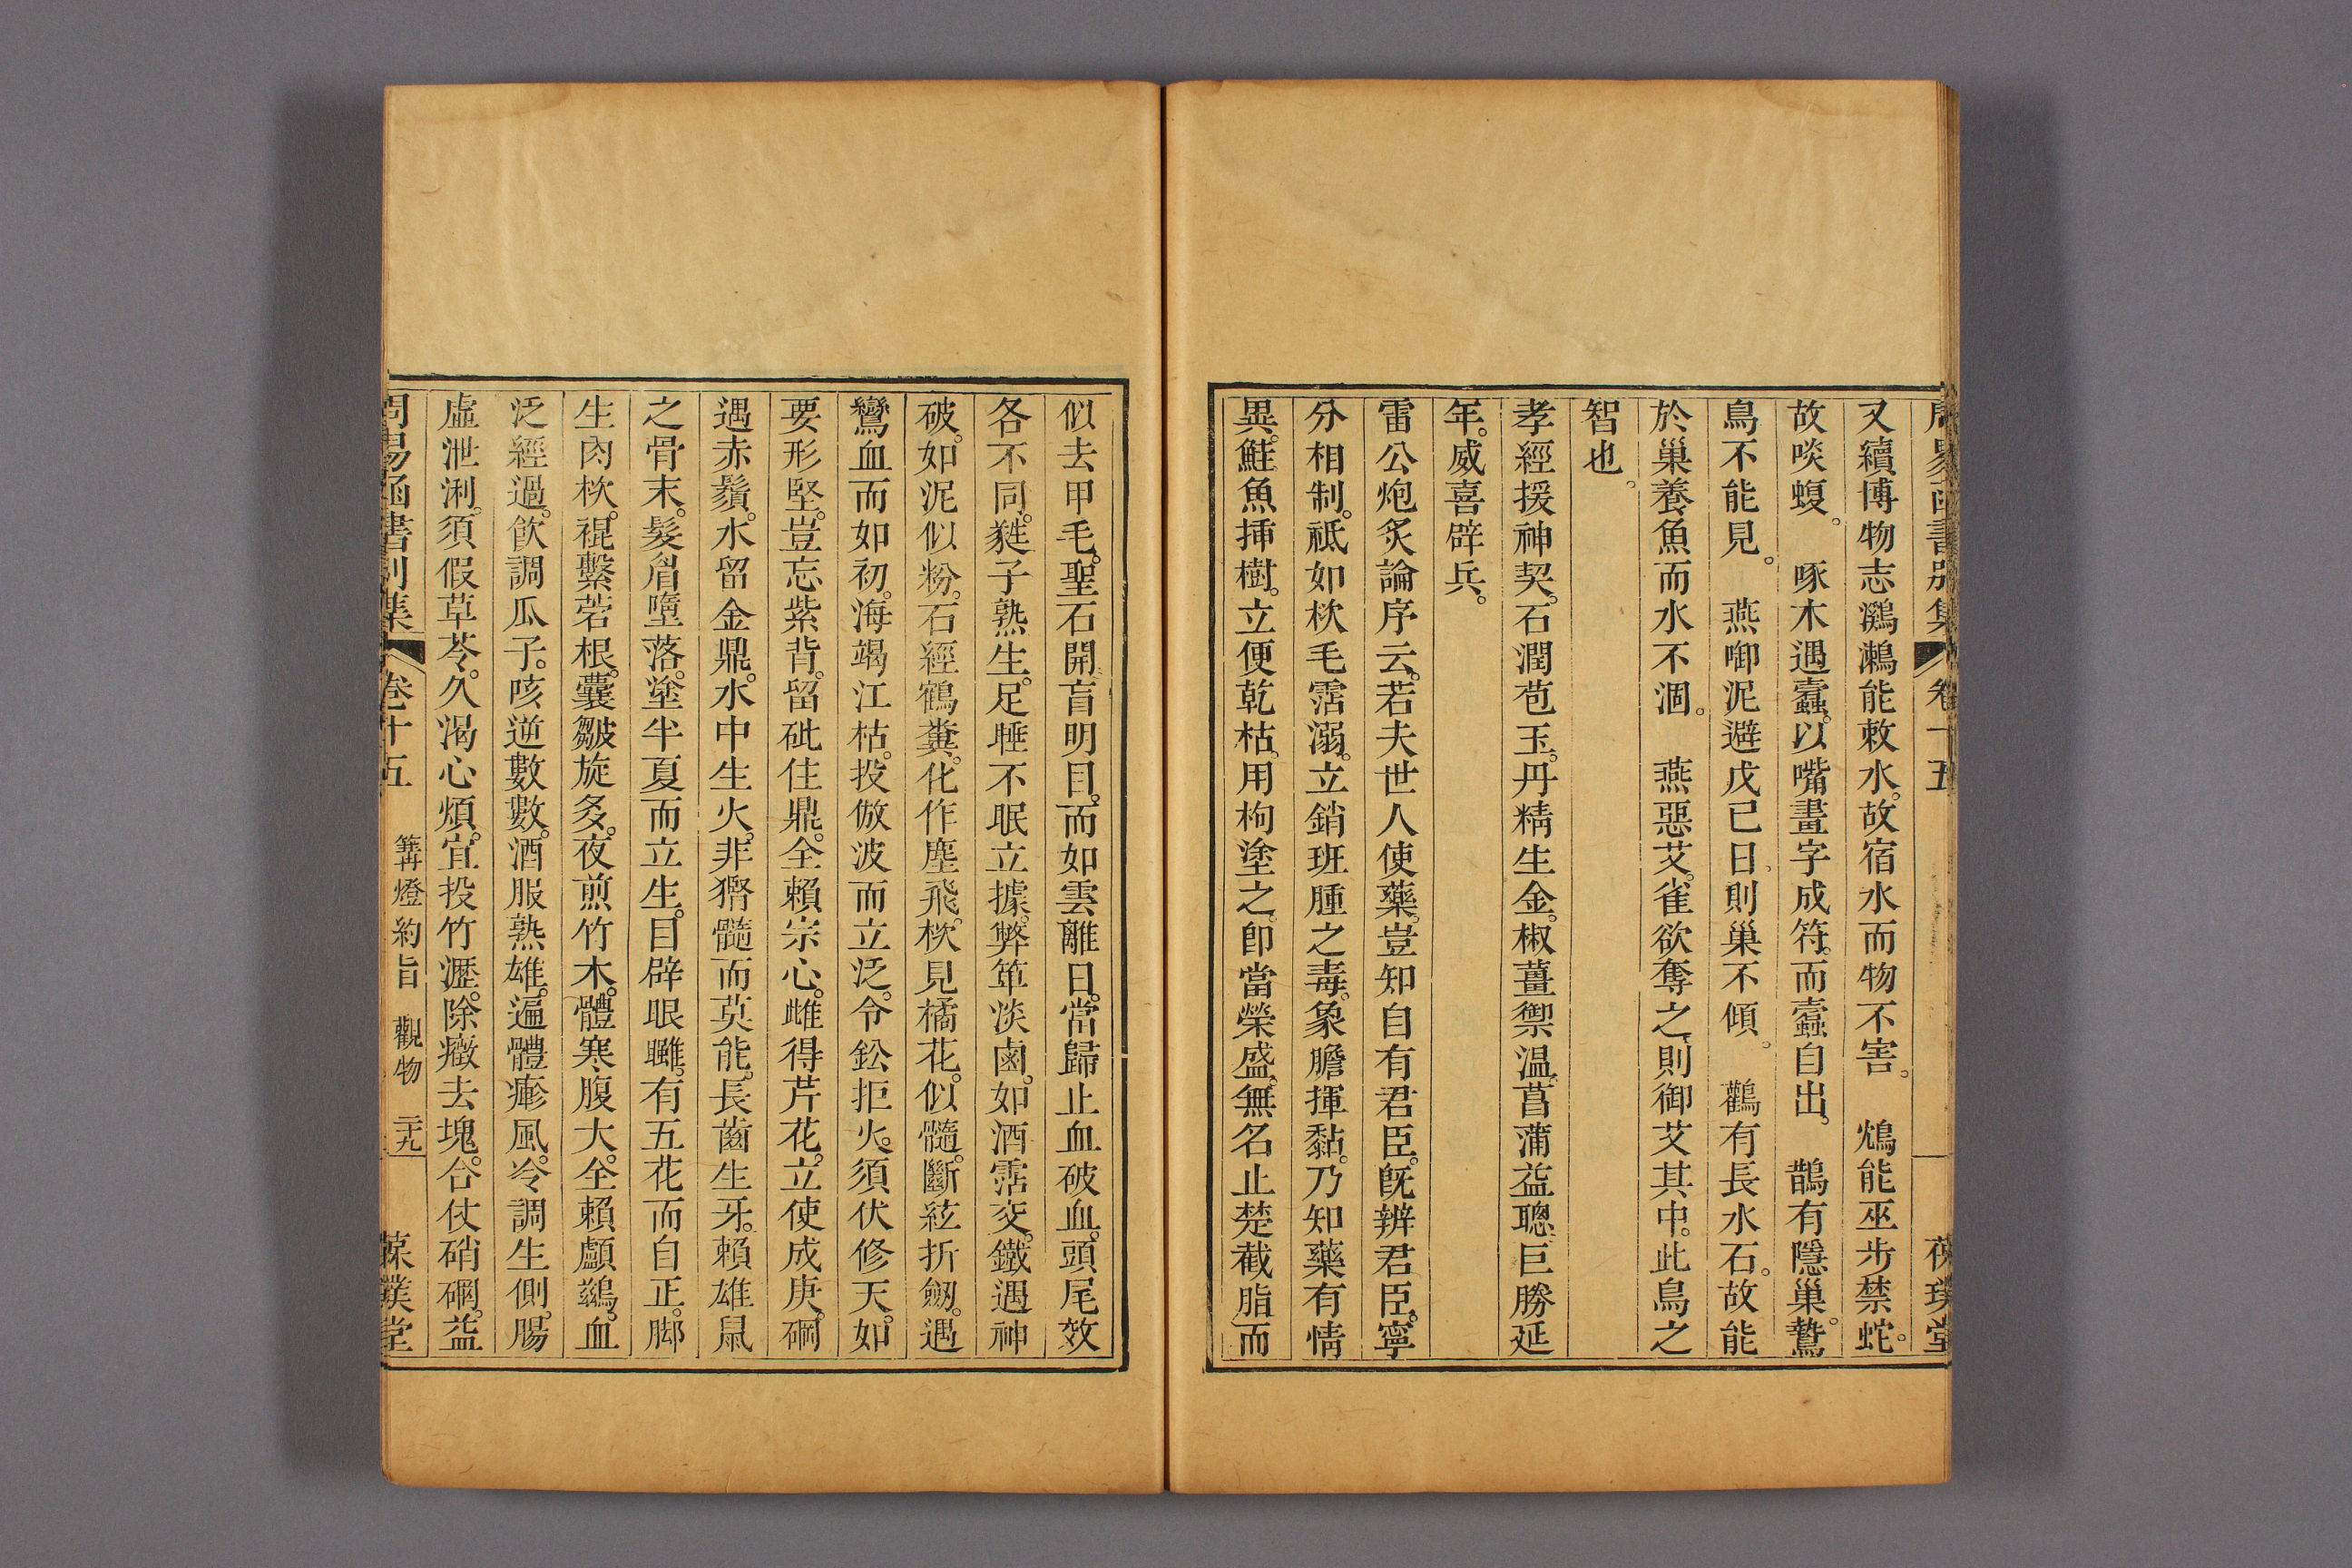 周易函書別集 卷十五 葆璞堂
又續博物志鸂鷘能敕水。故宿水而物不害。 鴆能巫步禁蛇。
故啖蝮。 啄木遇蠧。以嘴畫字成符。而蠧自出。 鵲有隱巢。鷙
鳥不能見。 燕啣泥避戊已日。則巢不傾。 鸛有長水石。故能
於巢養魚而水不涸。 燕惡艾。雀欲奪之。則御艾其中。此鳥之
智也。
孝經援神契。石潤苞玉。丹精生金。椒薑禦温。菖蒲益聰。巨勝延
年。威喜辟兵。
雷公炮炙論序云。若夫世人使藥。豈知自有君臣。旣辨君臣。寧
分相制。祗如栨毛霑溺。立銷班腫之毒。象膽揮黏。乃知藥有情
異。鮭魚挿樹。立便乾枯。用枸塗之。卽當榮盛。無名止楚截脂。而
似去甲毛。聖石開盲明目。而如雲離日。當歸止血破血。頭尾效
各不同。蕤子熟生。足睡不眠立據。弊箄淡鹵。如酒霑交。鐵遇神
破。如泥似粉。石經鶴糞。化作塵飛。栨見橘花。似髓。斷絃折劔。遇
鸞血而如初。海竭江枯。投倣波而立泛。令鈆拒火。須伏修天。如
要形堅。豈忘紫背。留砒住鼎。全賴宗心。雌得芹花。立使成庚。䃃
遇赤鬚。水留金鼎。水中生火。非猾髓而莫能。長齒生牙。賴雄鼠
之骨末。髮眉墮落。塗半夏而立生。目辟眼䁪。有五花而自正。脚
生肉栨。裩繫菪根。囊皺旋多。夜煎竹木。體寒腹大。全賴鸕鷀。血
泛經過。飮調瓜子。咳逆數數。酒服熟雄。遍體𤺋風。冷調生側。腸
虛泄涮。須假草苓。久渴心煩。宜投竹瀝。除癥去塊。合仗硝䃃。益
周易函書別集 卷十五 篝燈約旨 觀物 二十九 葆璞堂